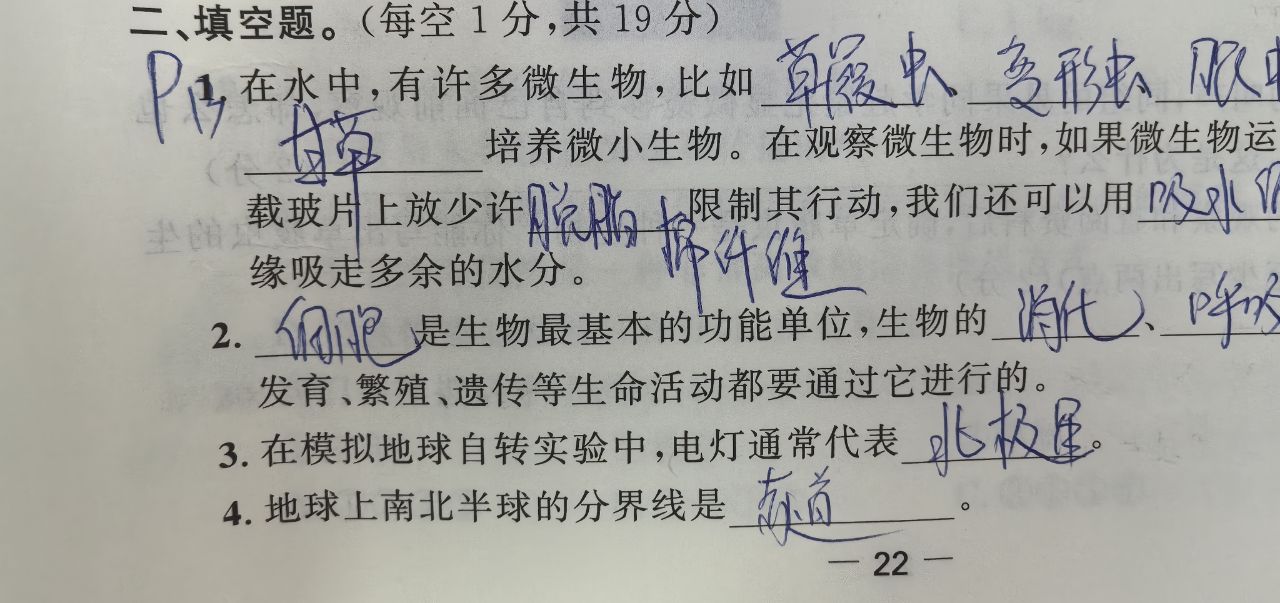 二、填空题。(每空 1 分,共 19 分)
P13 1. 在水中,有许多微生物,比如 草履虫、变形虫、眼虫
甘草 培养微小生物。在观察微生物时,如果微生物运
载玻片上放少许 脱脂棉纤维 限制其行动,我们还可以用 吸水
缘吸走多余的水分。
2. 细胞 是生物最基本的功能单位,生物的 消化、呼吸
发育、繁殖、遗传等生命活动都要通过它进行的。
3. 在模拟地球自转实验中,电灯通常代表 北极星。
4. 地球上南北半球的分界线是 赤道。
— 22 —